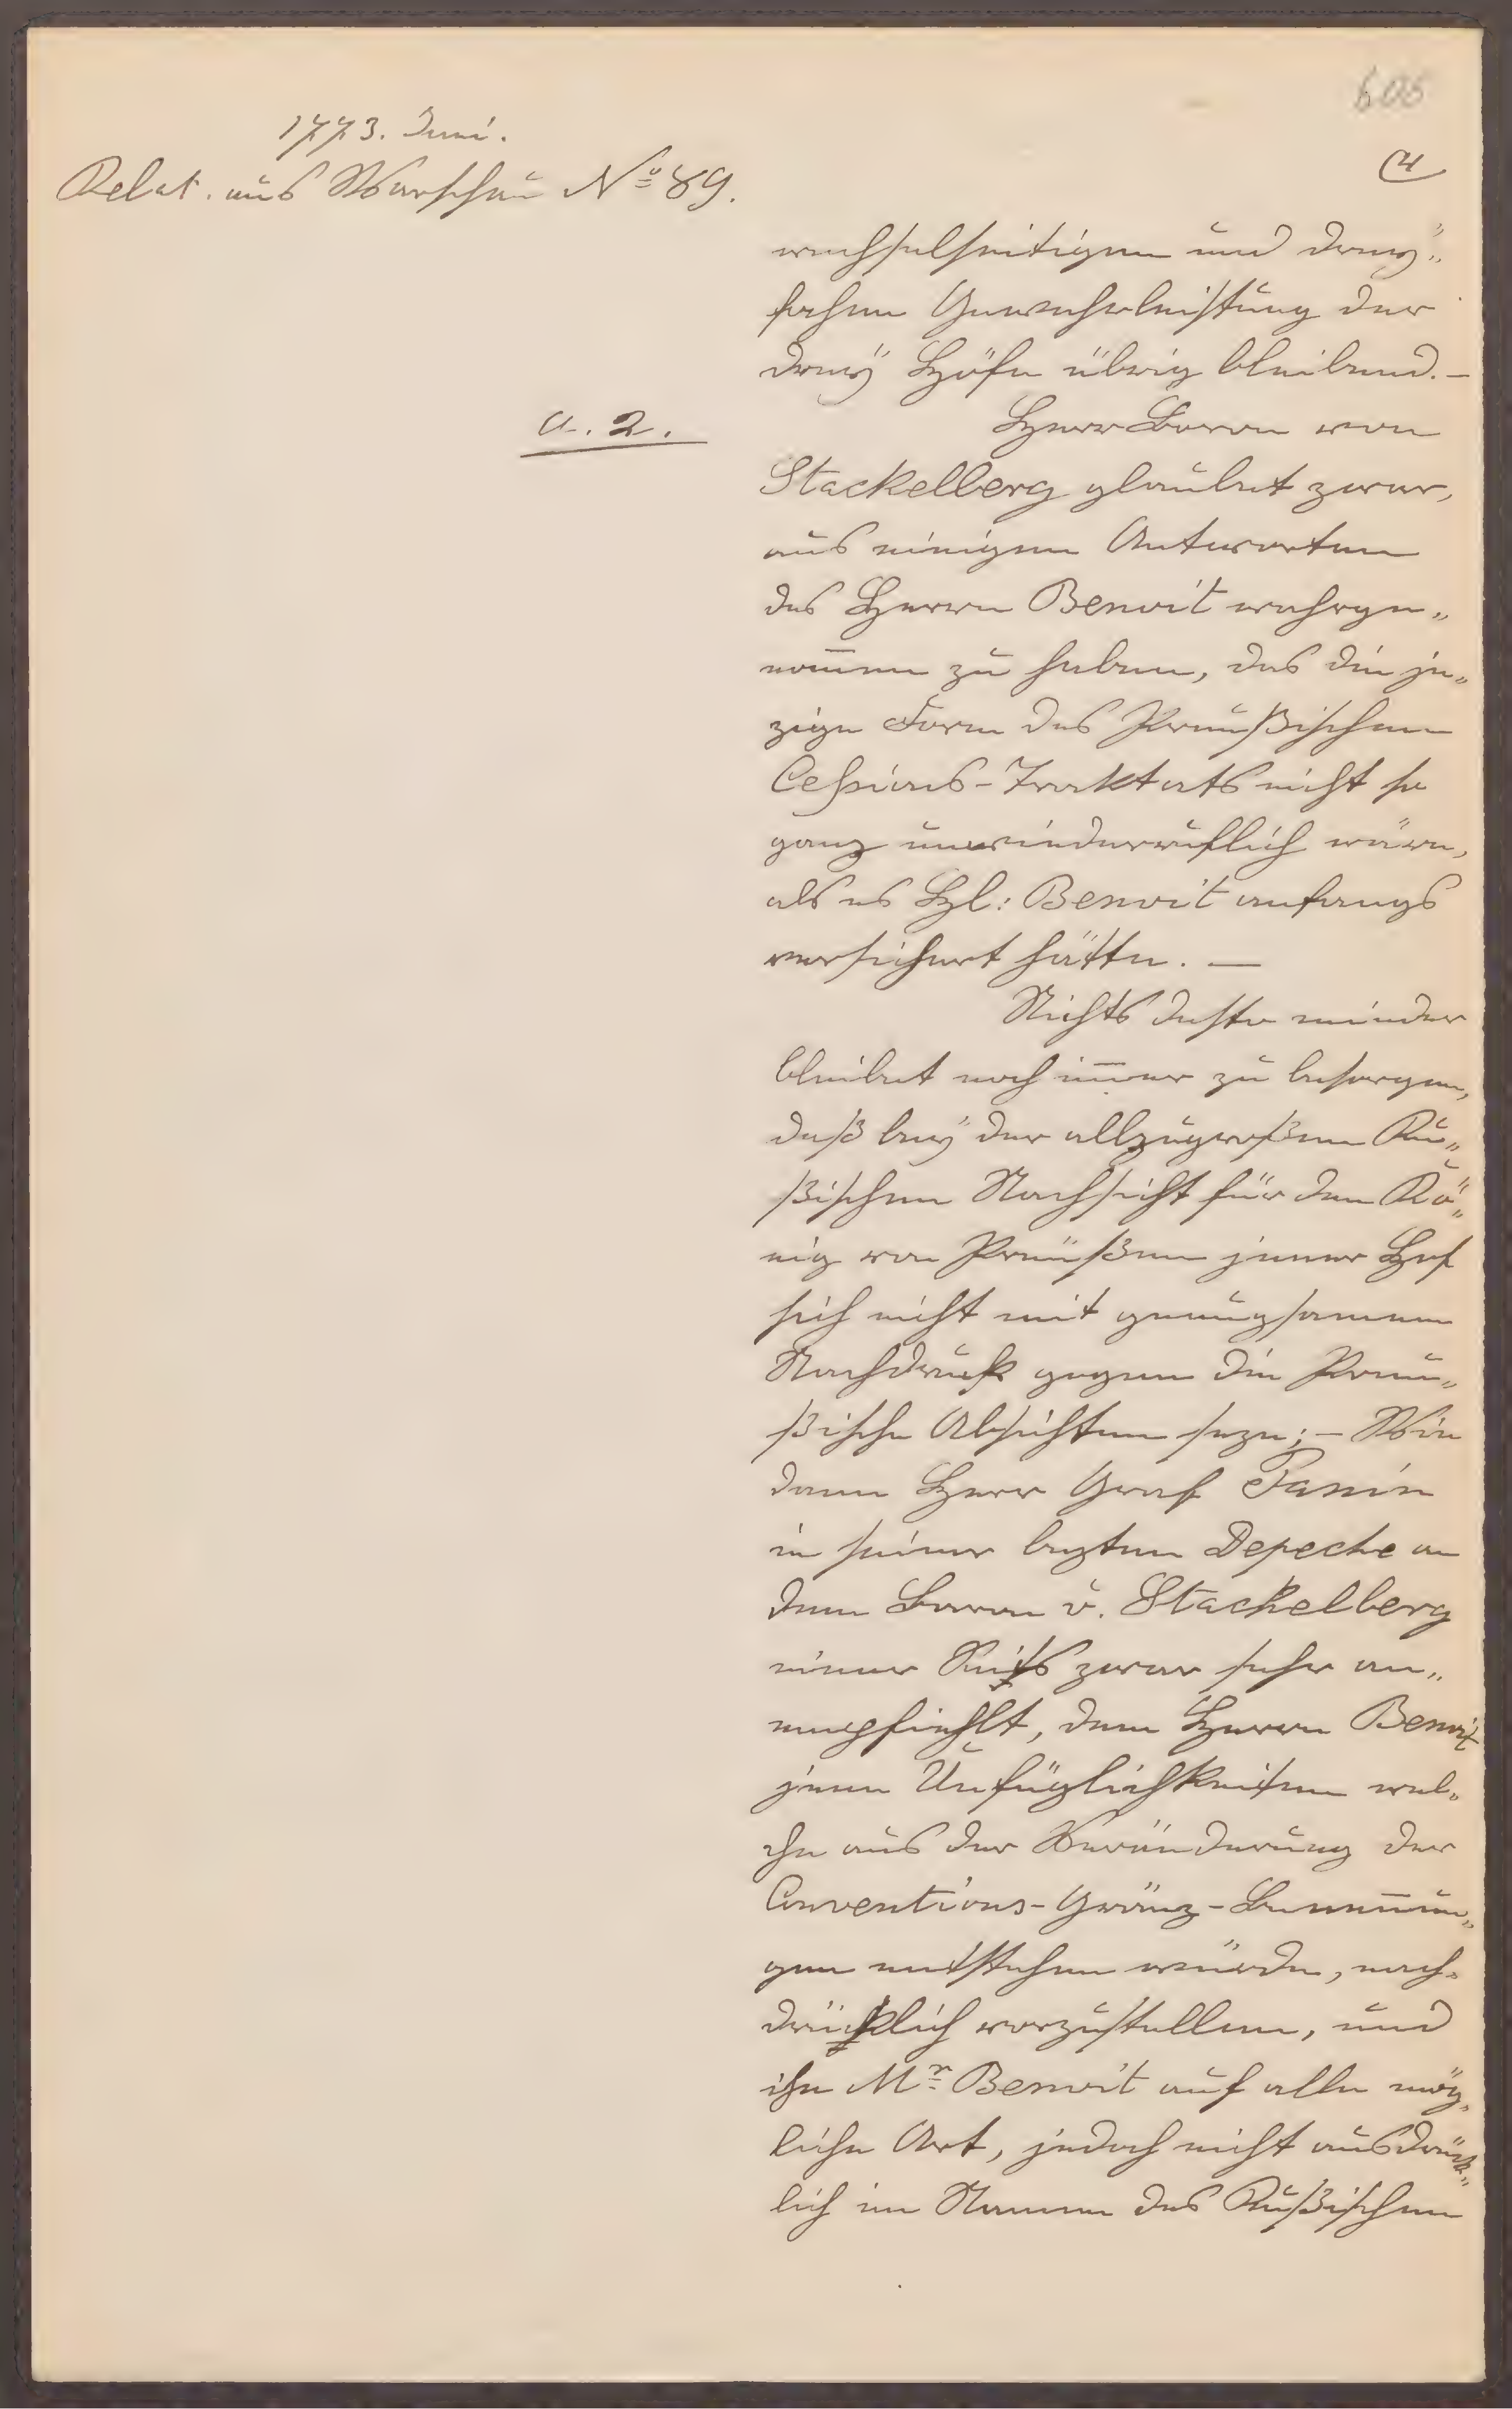 605
1773. Juni.
4
Relat. aus Warschau No 89.
wechselseitigen und drey„
fachen Gewehrleistung der
dreÿ Höfe übrig bleibend. –
a. 2.
Herr Baron von
Stackelberg glaubet zwar,
aus einigen Antworten
des Herrn Benoit wahrge„
nom̄en zu haben, das die je„
zige Form des Preußischen
Cessions-Traktats nicht so
ganz unwiederruflich wäre,
als es Hl: Benoit anfangs
versichert hätte. —
Nichts desto minder
bleibet noch im̄er zu besorgen,
daß beÿ der allzugroßen Ru„
ßischen Nachsicht für den Kö„
nig von Preüßen jener Hof
sich nicht mit genugsamen
Nachdruck gegen die Preu„
ßische Absichten seze; – Wie
dann Herr Graf Panin
in seiner lezten Depeche an
den Baron v. Stackelberg
einer Seits zwar sehr an„
empfiehlt, dem Herrn Benoit
jene Unfüglichkeiten wel„
che aus der Veränderung der
Conventions-Gränz-Benen̄un„
gen entstehen würde, nach„
drücklich vorzustellen, und
ihn Mr Benoit auf alle mög„
liche Art, jedoch nicht ausdrück„
lich im Namen des Rußischen